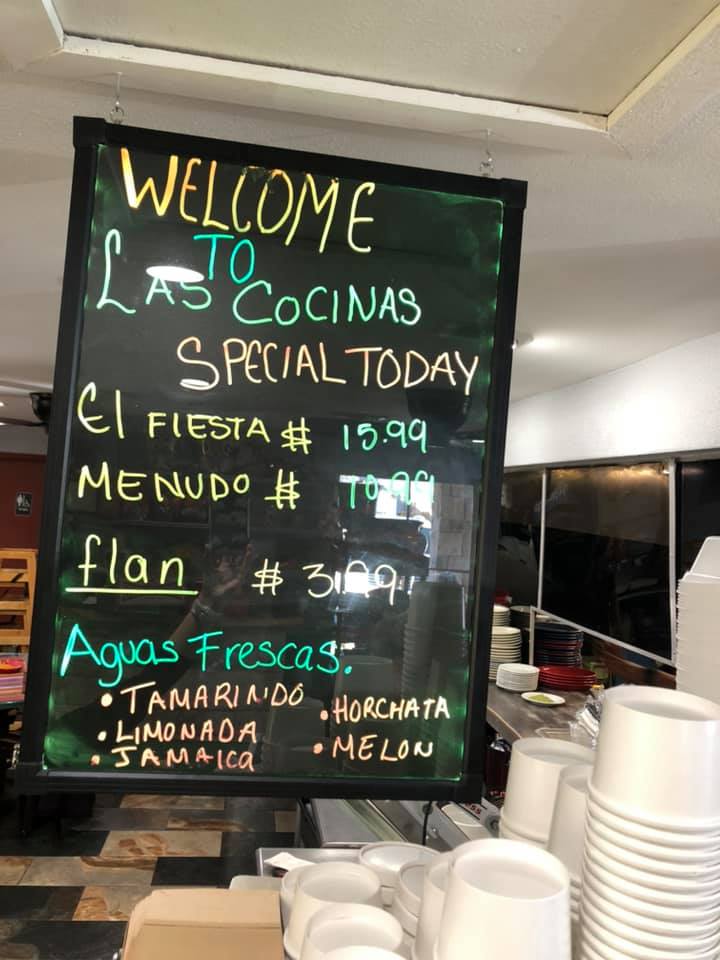 WELCOME
TO
LAS COCINAS
SPECIAL TODAY
El FIESTA $ 15.99
MENUDO $ 10.99
flan $ 3.99
Aguas Frescas.
• TAMARINDO • HORCHATA
• LIMONADA • MELON
• JAMAICA